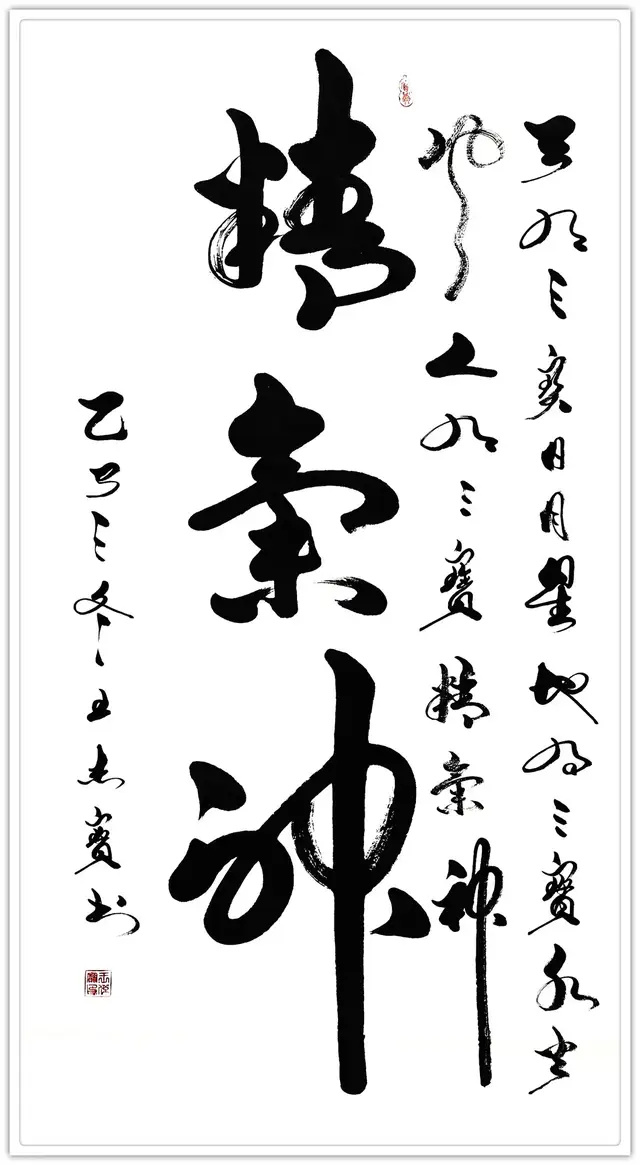 天有三寶日月星地有三寶水火
風人有三寶精氣神
精氣神
乙巳三冬王杰寶书